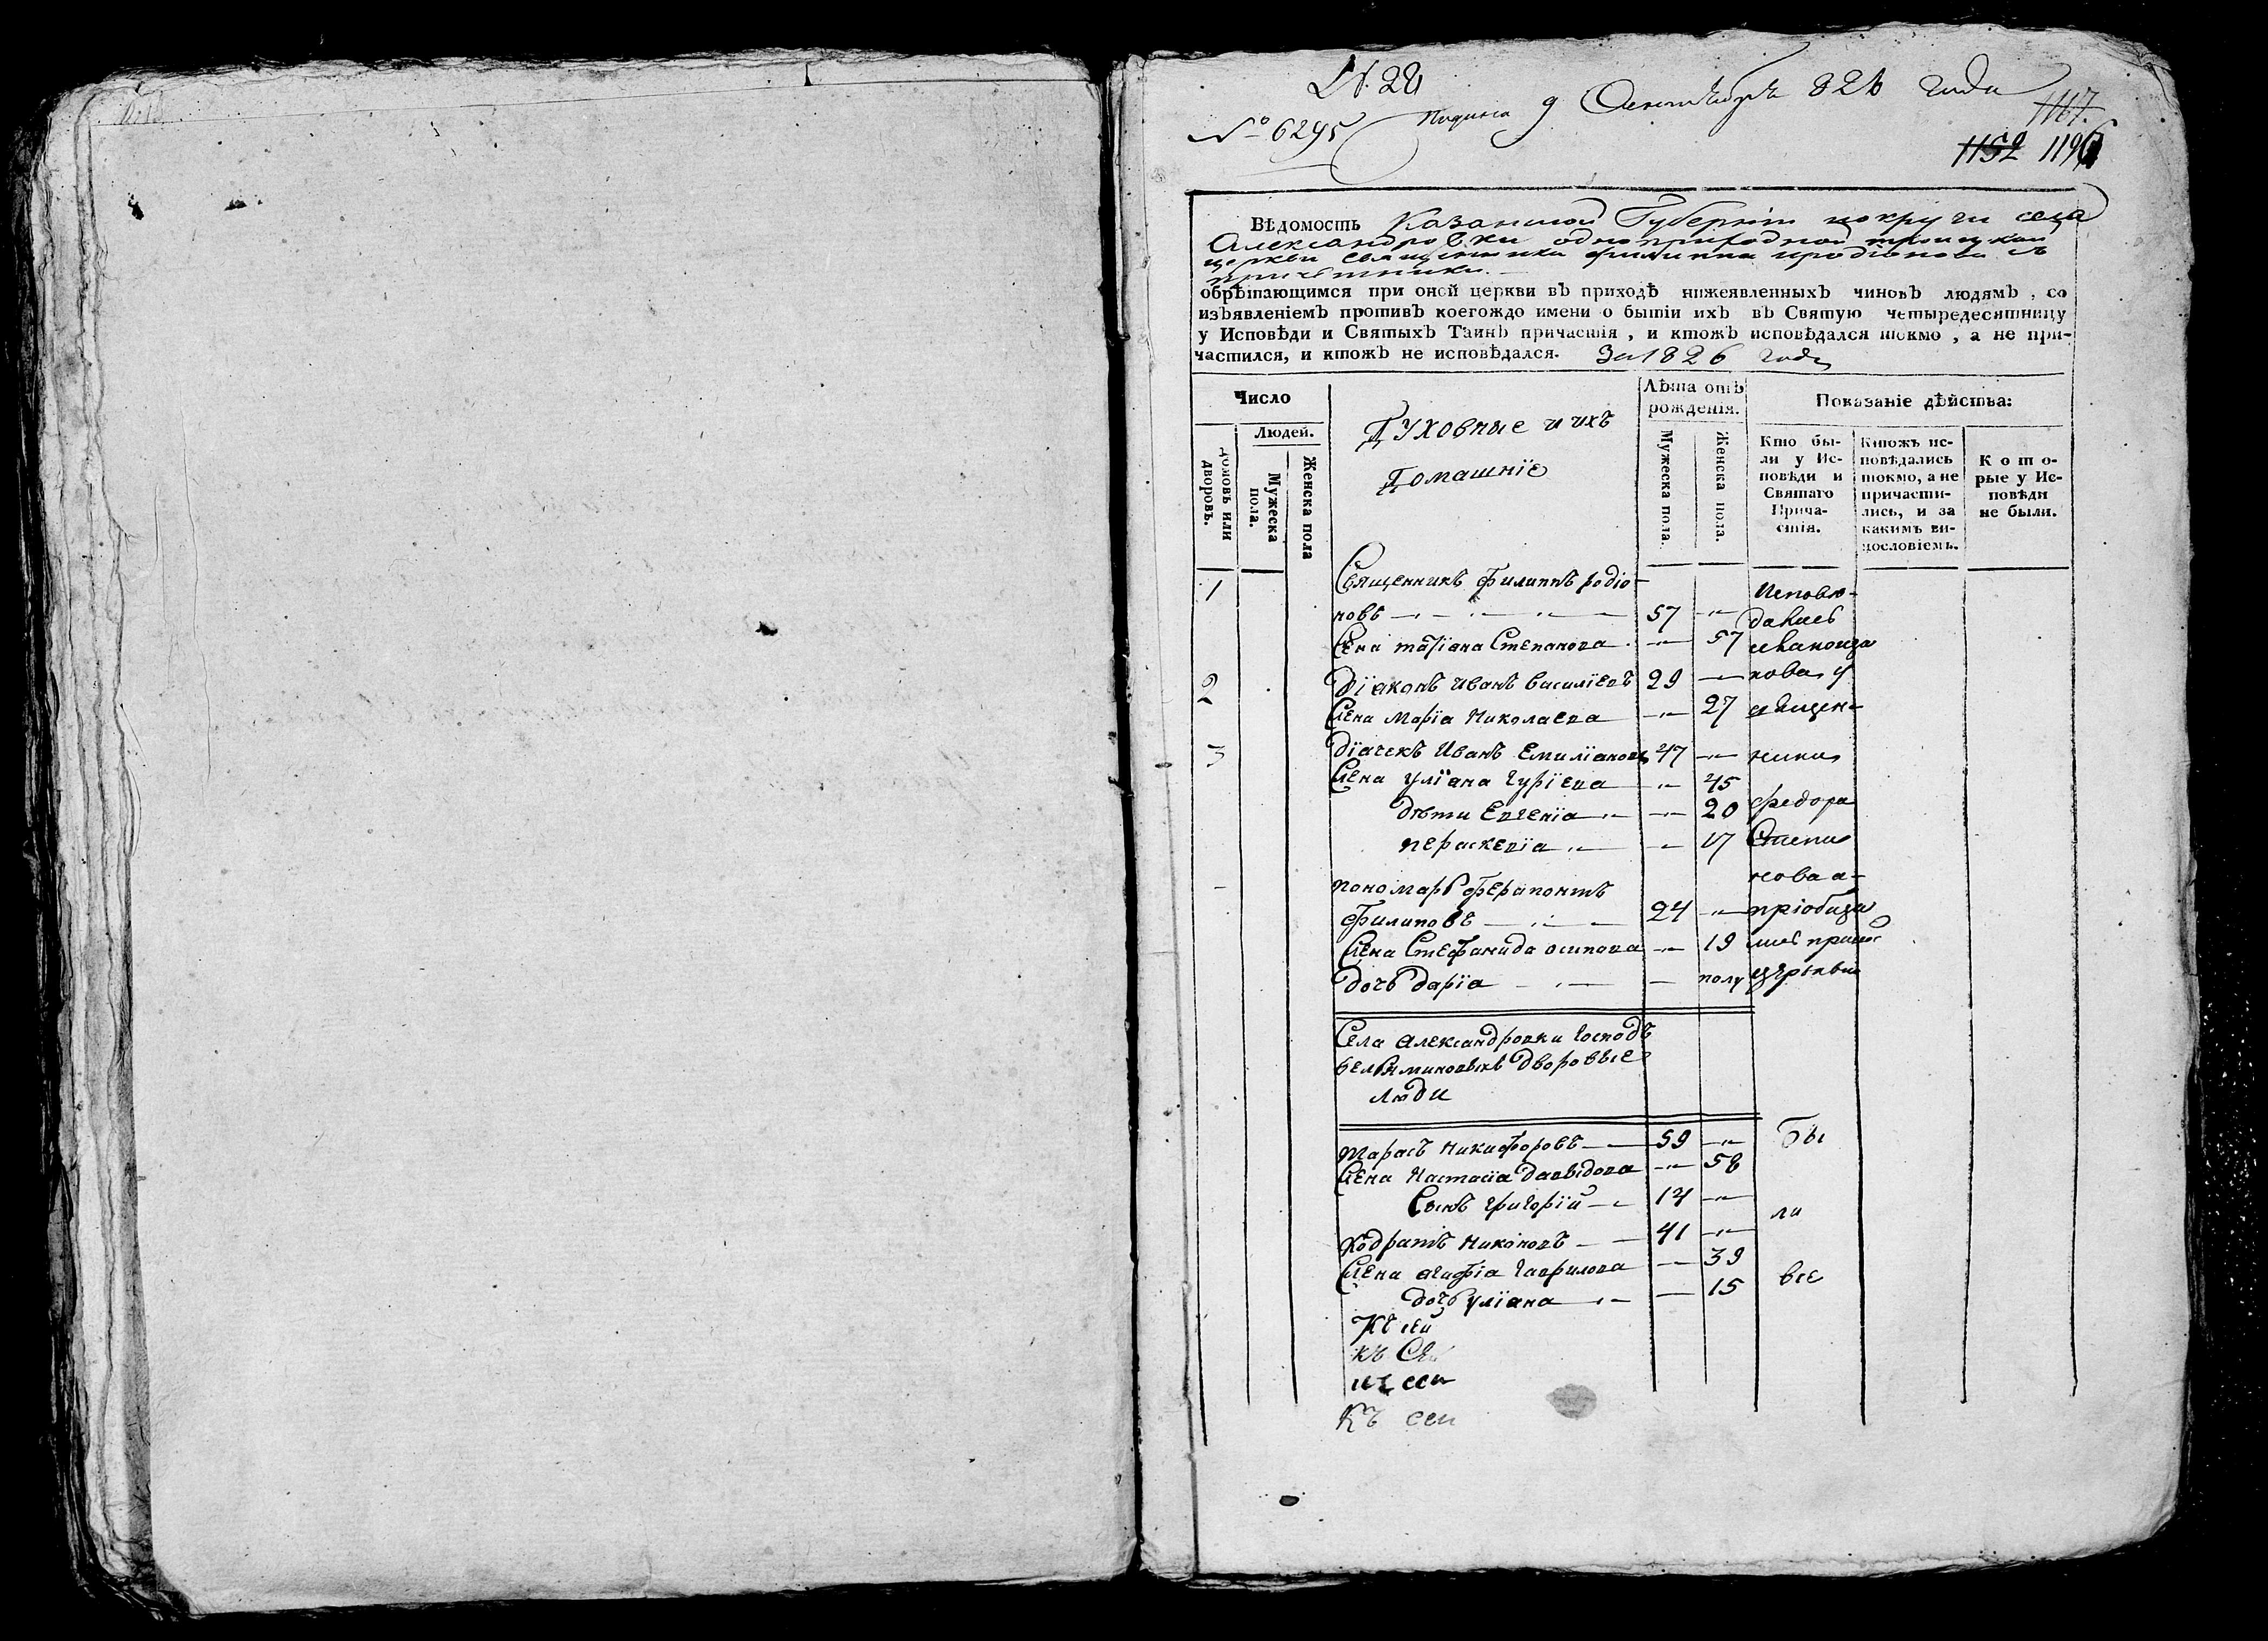 № 28
№ 6295
9 Сентября 826 года
1167.
1152 1196
Вѣдомость Казанской Губерніи округи села
Александровки одноприходной троицкой
церкви священника филиппа иродіонова съ
причетники.
обрѣтающимся при оной церкви въ приходѣ нижеявленныхъ чиновъ людямъ, со
изъявленіемъ противъ коегождо имени о бытіи ихъ въ Святую четыредесятницу
у Исповѣди и Святыхъ Таинъ причастія, и ктожъ исповѣдался токмо, а не при-
частился, и ктожъ не исповѣдался. За 1826 годъ
Число
Людей.
домовъ или дворовъ.
Мужеска пола.
Женска пола
Духовные и ихъ
Домашніе
Лѣта отъ
рожденія.
Мужеска пола.
Женска пола.
Показаніе дѣйства:
Кто бы-
ли у Ис-
повѣди и
Святаго
Прича-
стія.
Ктожъ ис-
повѣдались
токмо, а не
причасти-
лись, и за
какимъ ви-
нословіемъ.
Кото-
рые у Ис-
повѣди
не были.
1 Священникъ Филиппъ родіо- Исповѣ-
новъ 57 дались
Жена татіана Степанова 57
2 Діаконъ иванъ василіевъ 29 кова у
Жена Марія Николаева 27 священ-
3 Діачекъ Иванъ Емиліановъ 47 ника
Жена уліана гуріева 45
дѣти Евгеніа 20 федора
пераскевіа 17 Степа
пономарь ферапонтъ нова а-
Филиповъ 24 пріобща
Жена Стефанида осипова 19 лись при
дочь даріа полу церкви
Села александровки господъ
бельяминовыхъ дворовые
люди
тарасъ никифоровъ 59 Бы
Жена Настасіа давыдова 58
Сынъ григорій 14
Кодратъ никоновъ 41 ли
Жена агафіа гаврилова 39
дочь уліана 15 все
Къ сей
къ Се
къ сей
Къ сеи